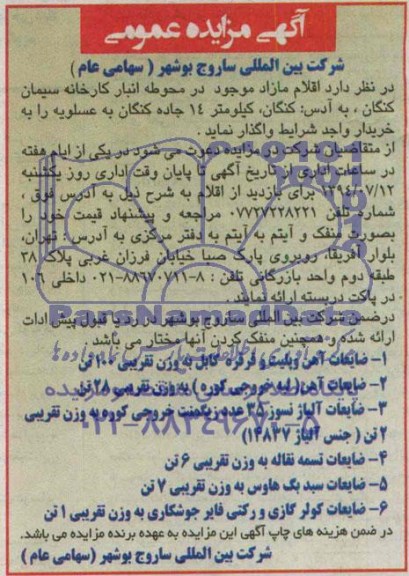 آگهی مزایده عمومی
شرکت بین المللی ساروج بوشهر ( سهامی عام )
در نظر دارد اقلام مازاد موجود در محوطه انبار کارخانه سیمان
کنگان ، به آدرس: کنگان، کیلومتر ١٤ جاده کنگان به عسلویه را به
خریدار واجد شرایط واگذار نماید .
از متقاضیان شرکت در مزایده دعوت می شود در یکی از ایام هفته
در ساعات اداری از تاریخ آگهی تا پایان وقت اداری روز یکشنبه
١٣٩٤/٠٧/١٢ برای بازدید از اقلام به شرح ذیل به آدرس فوق ،
شماره تلفن ٠٧٧٣٧٢٢٨٢٢١ مراجعه و پیشنهاد قیمت خود را
بصورت منفک و آیتم به آیتم به دفتر مرکزی به آدرس: تهران،
بلوار آفریقا، روبروی پارک صبا خیابان فرزان غربی پلاک ٣٨
طبقه دوم واحد بازرگانی تلفن : ٨-٨٨٦٧٠٧١١-٠٢١ داخلی ١٠٦
در پاکت دربسته ارائه نمایند .
درضمن شرکت بین المللی ساروج بوشهر در رد یا قبول پیشنهادات
ارائه شده و همچنین منفک کردن آنها مختار می باشد .
١- ضایعات آهن وپلیت و قرقره کابل به وزن تقریبی ١٠٠ تن
٢- ضایعات آهن (لبه خروجی کوره ) به وزن تقریبی ٢٨ تن
٣- ضایعات آلیاژ نسوز ٣٥ عدد زیگمنت خروجی کوره به وزن تقریبی
٢ تن ( جنس آلیاژ ١٤٨٣٧)
٤- ضایعات تسمه نقاله به وزن تقریبی ٦ تن
٥- ضایعات سبد بگ هاوس به وزن تقریبی ٧ تن
٦- ضایعات کولر گازی و رکتی فایر جوشکاری به وزن تقریبی ١ تن
در ضمن هزینه های چاپ آگهی این مزایده به عهده برنده مزایده می باشد.
شرکت بین المللی ساروج بوشهر (سهامی عام )
ParsNamadData
٠٢١-٨٨٣٤٩٦٧٠-٥